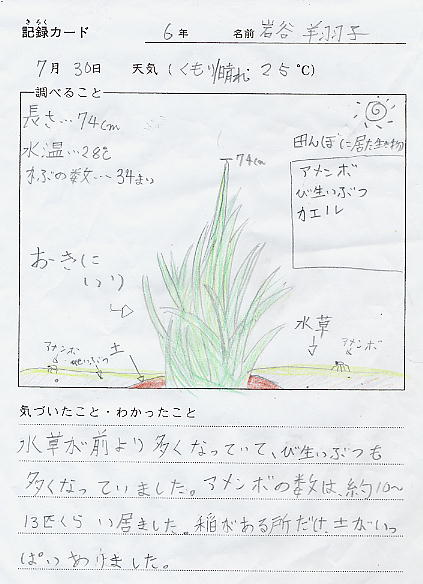 きろく
記録カード 6年 名前 岩谷 羊羽子
7月 30日 天気 (くもり/晴れ・25℃)
調べること
長さ…74cm
水温…28℃
はぶの数…34まい
74cm
田んぼに居た生き物
アメンボ
び生いぶつ
カエル
おーきに
いり
アメンボ
び生いぶつ
土
水草
アメンボ
気づいたこと・わかったこと
水草が前より多くなっていて、び生いぶつも
多くなっていました。アメンボの数は、約10〜
13匹くらい居ました。稲がある所だけ、土がいっ
ぱいありました。